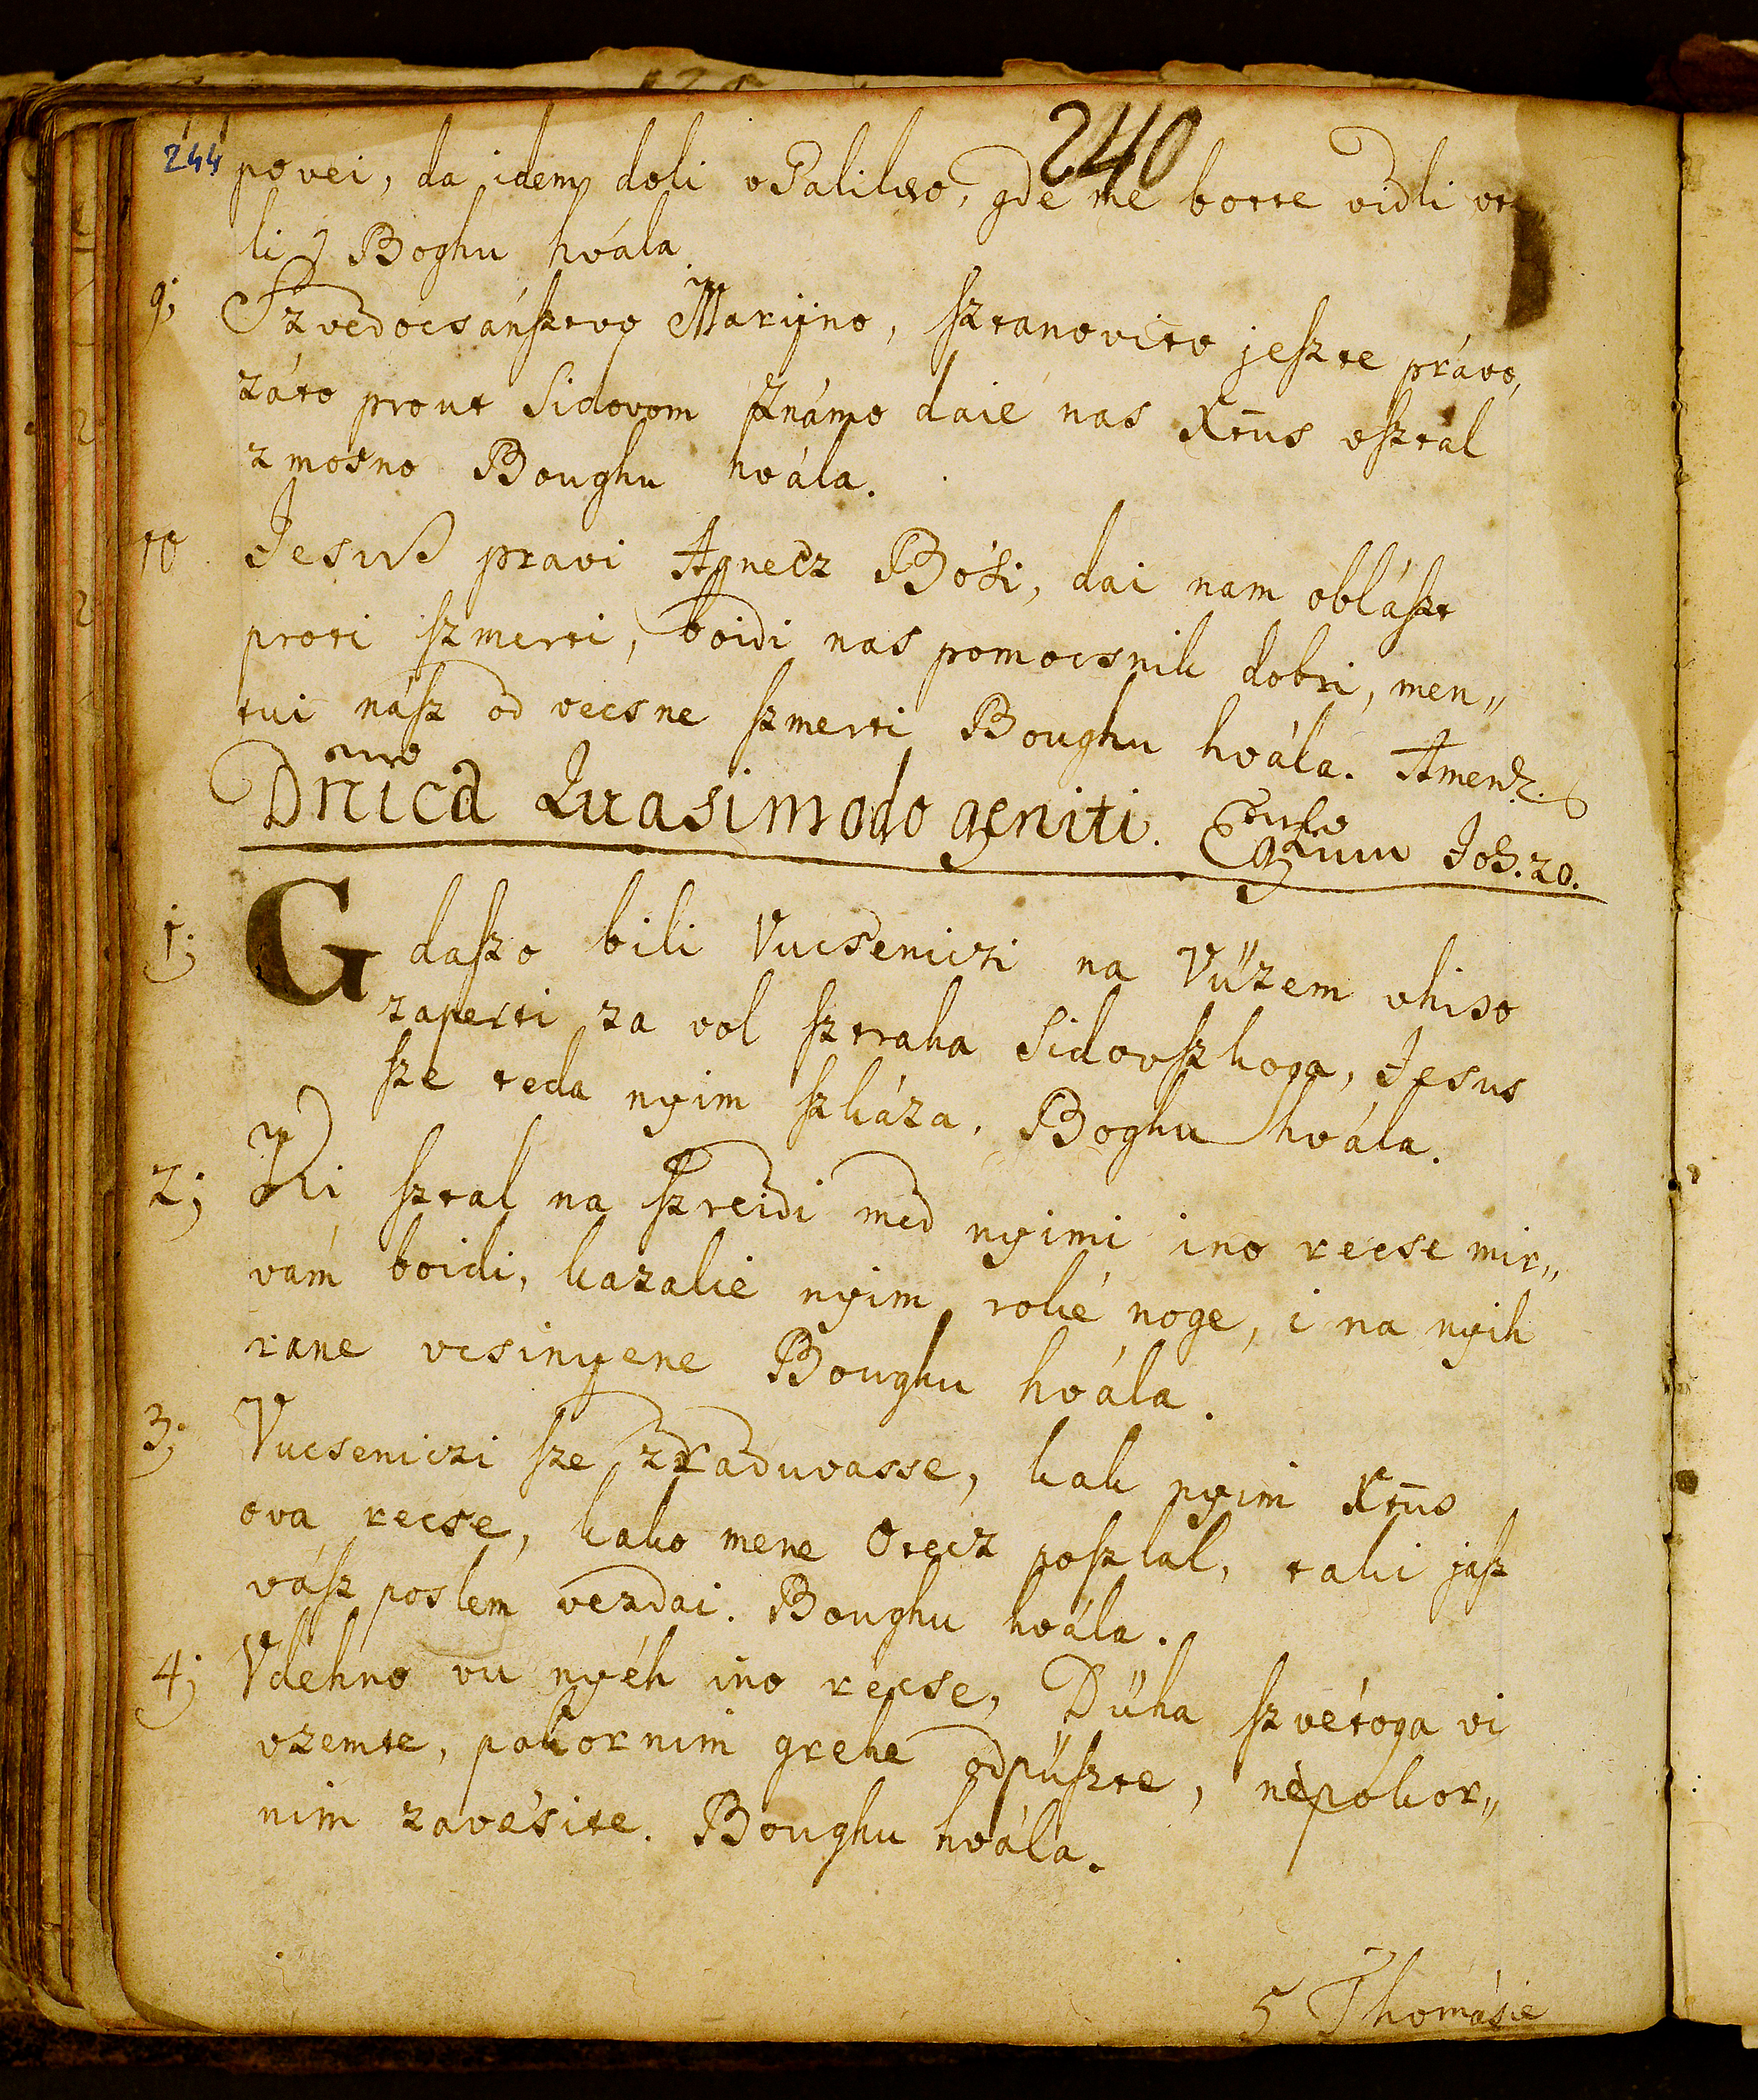 240
244 povei, da idem doli v Galileo, gde me botte vidli vee
li, Boghu hvála.
9; Szvedocsánsztvo Mariino, sztanovito jeszte právo,
záto prout Sidovom známo daie nas Xtūs vsztal
zmosno Boughu hvála.
10 Jesus pravi Agnecz Bósi, dai nam oblászt
proti szmerti, boidi nas pomocsnik dobri, men„
tui nász od vecsne szmerti Boughu hvála. Amen.
Dnica Quasimodo geniti. Joh. 20.
1; Gdaszo bili Vucseniczi na Vüzem vhiso
zaperti za vol sztraha Sidovszkoga, Jesus
sze teda nyim szkáza, Boghu hvála.
2; Ki sztal na szreidi med nyimi ino recse mir„
vám boidi, kazalie nyim roké noge, i na nyih
rane vcsinyene Boughu hvála.
3; Vucseniczi sze zraduvasse, kak nyim Xtūs
ova recse, kako mene Otecz poszlal, taki jasz
vász poslem vezdai. Boughu hvála.
4; Vdehno vu nyéh ino recse, Düha szvétoga vi
vzemte, pokornim grehe odpüszte, népokor„
nim zavésite. Boughu hvála.
5 Thomásie